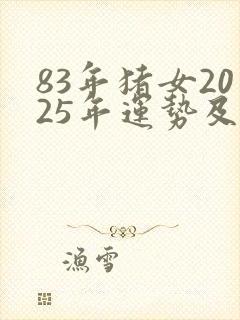 83年猪女20
25年運势及
漁雪